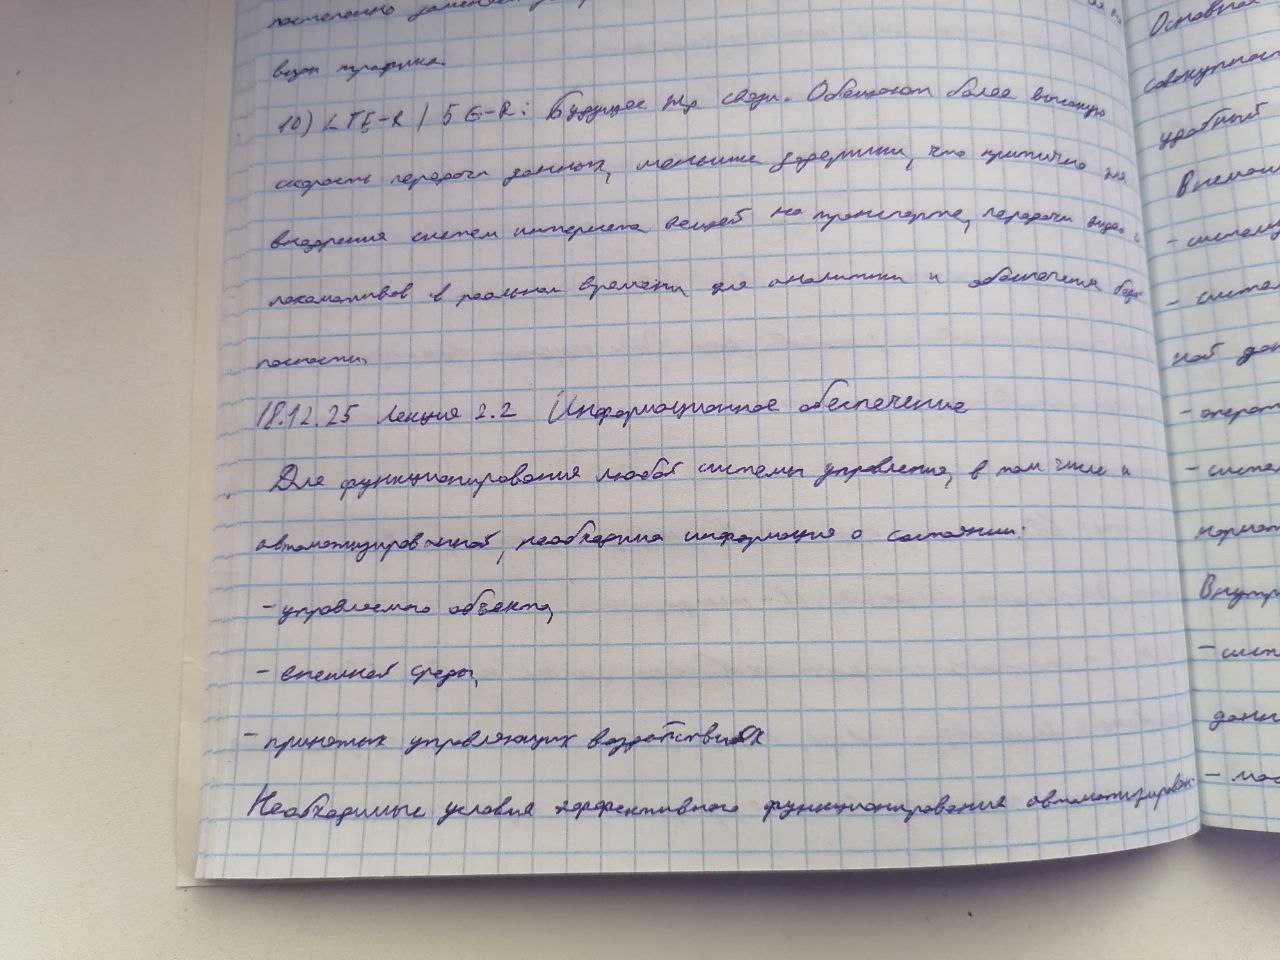 постепенно
видам трафика.
10) LTE-R / 5G-R: Будущее жд связи. Обещают более высокую
скорость передачи данных, меньшие задержки, что критично для
внедрения систем интернета вещей на транспорте, передачи видео с
локомотивов в реальном времени для аналитики и обеспечения безо-
пасности.
18.12.25 Лекция 2.2 Информационное обеспечение
Для функционирования любой системы управления, в том числе и
автоматизированной, необходима информация о состоянии:
- управляемого объекта,
- внешней среды,
- принятых управляющих воздействиях
Необходимые условия эффективного функционирования автоматизирован-
Основное
совокупност
удобный
Внемаш
- систему
- систем
ной дон
- операт
- систем
нормат
Внутри
- сист
данн
- мас